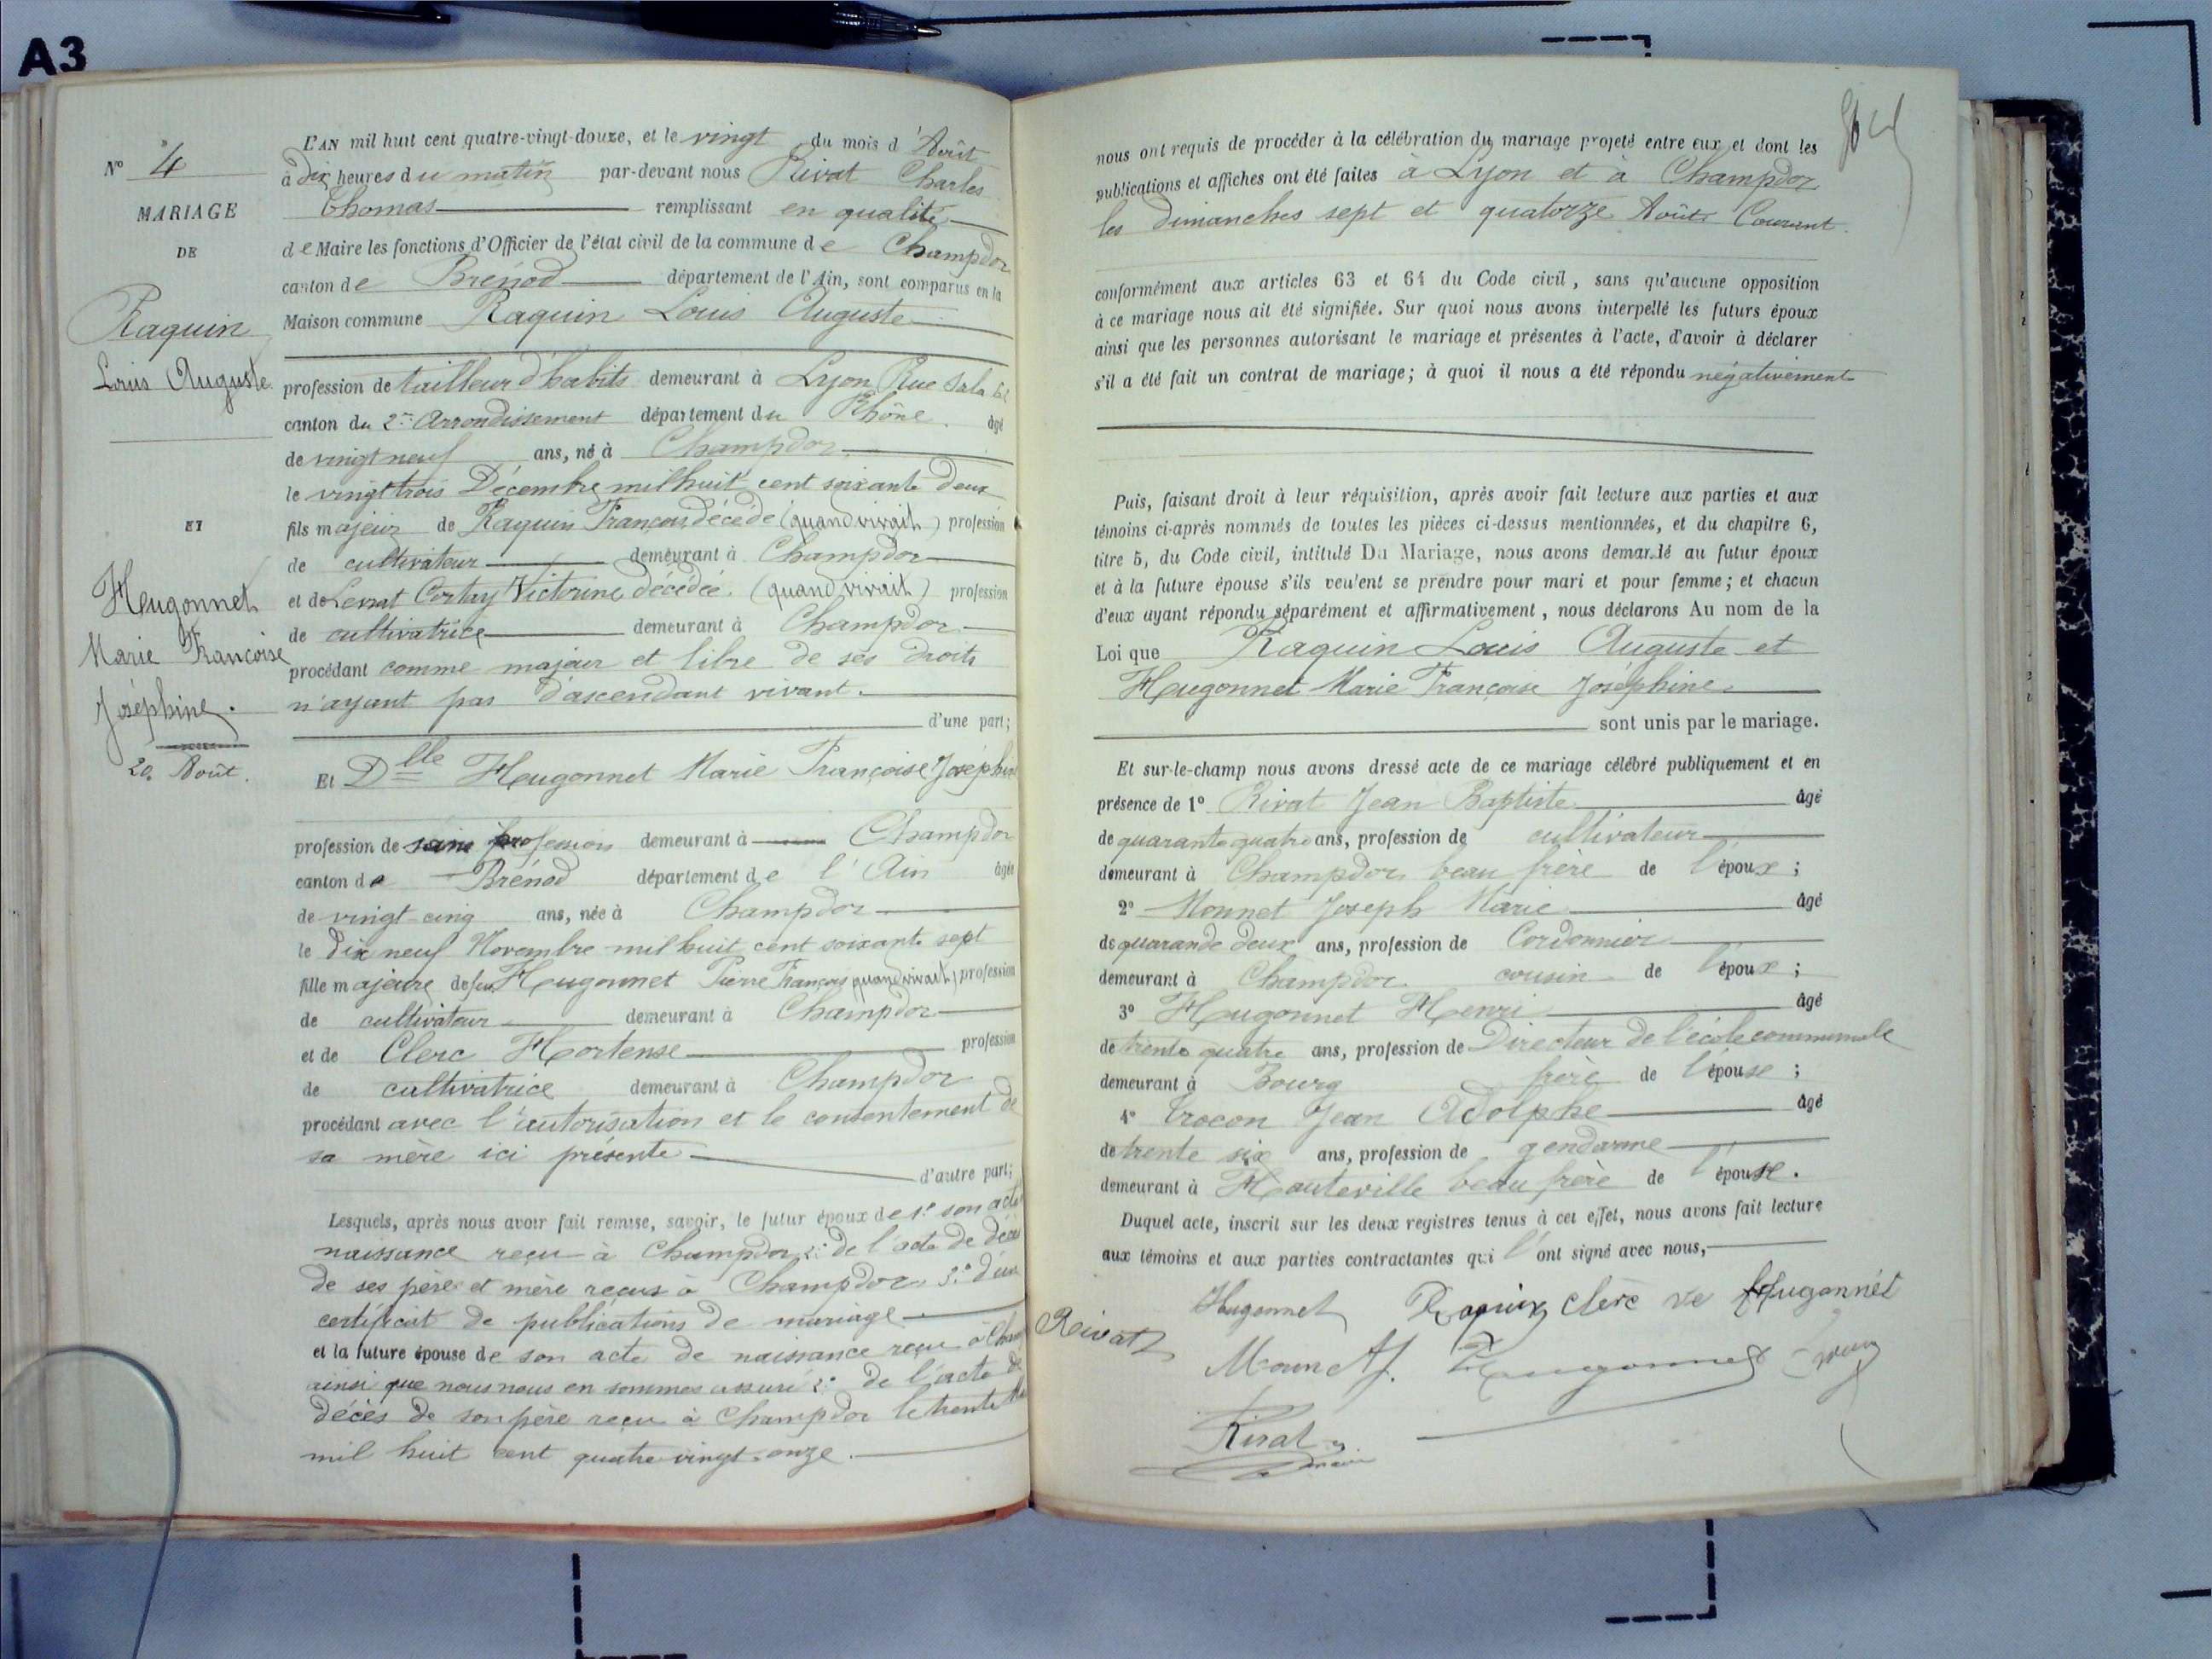 A3
N° 4
MARIAGE
DE
Raquin
Louis Auguste
ET
Hugonnet
Marie Françoise
Joséphine.
20 Août.
L'AN mil huit cent quatre-vingt-douze, et le vingt du mois d'Août
à dix heures du matin par-devant nous Rivat Charles
Thomas remplissant en qualité
de Maire les fonctions d'Officier de l'état civil de la commune de Champdor
canton de Brénod département de l'Ain, sont comparus en la
Maison commune Raquin Louis Auguste
profession de tailleur d'habits demeurant à Lyon Rue Sala
canton du 2me Arrondissement département du Rhône. âgé
de vingt neuf ans, né à Champdor
le vingt trois Décembre mil huit cent soixante deux
fils majeur de Raquin François décédé (quand vivait) profession
de cultivateur demeurant à Champdor
et de Levrat Cortay Victorine décédée. (quand vivait) profession
de cultivatrice demeurant à Champdor
procédant comme majeur et libre de ses droits
n'ayant pas d'ascendant vivant.
d'une part;
Et Dlle Hugonnet Marie Françoise Joséphine
profession de sans profession demeurant à Champdor
canton de Brénod département de l'Ain âgée
de vingt-cinq ans, née à Champdor
le dix neuf Novembre mil huit cent soixante sept
fille majeure de feu Hugonnet Pierre François (quand vivait) profession
de cultivateur demeurant à Champdor
et de Clerc Hortense profession
de cultivatrice demeurant à Champdor
procédant avec l'autorisation et le consentement de
sa mère ici présente
d'autre part;
Lesquels, après nous avoir fait remise, savoir, le futur époux de 1° son acte
naissance reçu à Champdor, 2° de l'acte de décès
de ses père et mère reçus à Champdor 3° d'un
certificat de publications de mariage
et la future épouse de son acte de naissance reçu à
ainsi que nous nous en sommes assuré 2° de l'acte de
décès de son père reçu à Champdor le trente
mil huit cent quatre-vingt-onze.
nous ont requis de procéder à la célébration du mariage projeté entre eux et dont les
publications et affiches ont été faites à Lyon et à Champdor
les dimanches sept et quatorze Août Courant.
conformément aux articles 63 et 64 du Code civil, sans qu'aucune opposition
à ce mariage nous ait été signifiée. Sur quoi nous avons interpellé les futurs époux
ainsi que les personnes autorisant le mariage et présentes à l'acte, d'avoir à déclarer
s'il a été fait un contrat de mariage; à quoi il nous a été répondu négativement
Puis, faisant droit à leur réquisition, après avoir fait lecture aux parties et aux
témoins ci-après nommés de toutes les pièces ci-dessus mentionnées, et du chapitre 6,
titre 5, du Code civil, intitulé Du Mariage, nous avons demandé au futur époux
et à la future épouse s'ils veulent se prendre pour mari et pour femme; et chacun
d'eux ayant répondu séparément et affirmativement, nous déclarons Au nom de la
Loi que Raquin Louis Auguste et
Hugonnet Marie Françoise Joséphine.
sont unis par le mariage.
Et sur-le-champ nous avons dressé acte de ce mariage célébré publiquement et en
présence de 1° Rivat Jean Baptiste âgé
de quarante quatre ans, profession de cultivateur
demeurant à Champdor beau frère de l'époux;
2° Monnet Joseph Marie âgé
de quarande deux ans, profession de Cordonnier
demeurant à Champdor cousin de l'époux;
3° Hugonnet Henri âgé
de trente quatre ans, profession de Directeur de l'école communale
demeurant à Bourg frère de l'épouse;
4° Trocon Jean Adolphe âgé
de trente six ans, profession de gendarme
demeurant à Hauteville beau frère de l'épouse.
Duquel acte, inscrit sur les deux registres tenus à cet effet, nous avons fait lecture
aux témoins et aux parties contractantes qui l'ont signé avec nous,
Hugonnet Raquin Clerc ve Hugonnet
Rivat
Monnet J. Hugonnet
Rivat